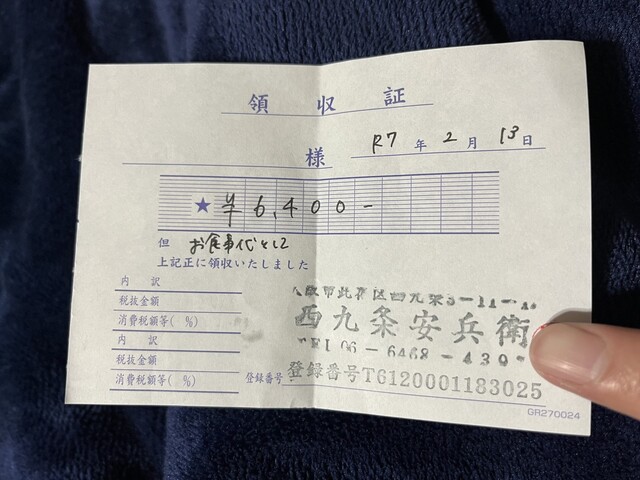 領収証
R7年2月13日
様
★ ¥6,400-
但 お食事代として
上記正に領収いたしました
内訳
税抜金額
消費税額等( %)
内訳
税抜金額
消費税額等( %)
阪市此花区西九条
西九条安兵衛
TEL 06-6468-439
登録番号 登録番号T6120001183025
GR270024